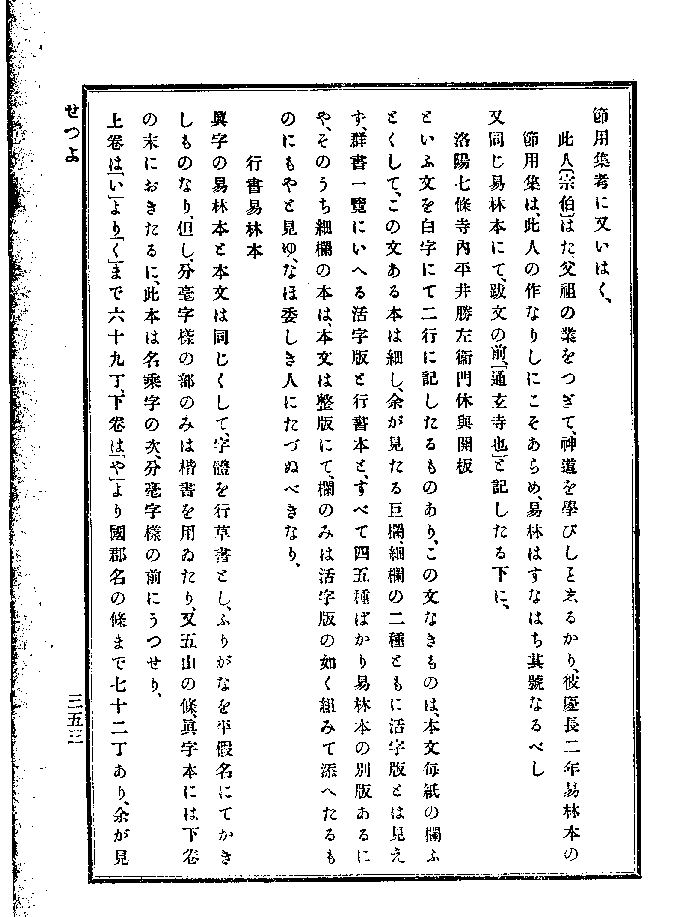 節用集考に又いはく、
此人[宗伯]はた、父祖の業をつぎて、神道を學びしと見るかり、彼慶長二年易林本の
節用集は、此人の作なりしにこそあらめ、易林はすなはち其號なるべし
又同じ易林本にて、跋文の前、[通玄寺也]と記したる下に、
洛陽七條寺內平井勝左衞門休與開板
といふ文を白字にて二行に記したるものあり、この文なきものは、本文每紙の欄ふ
とくして、この文ある本は細し、余が見たる巨欄、細欄の二種ともに活字版とは見え
ず、群書一覽にいへる活字版と行書本と、すべて四五種ばかり易林本の別版あるに
や、そのうち細欄の本は、本文は整版にて、欄のみは活字版の如く組みて添へたるも
のにもやと見ゆ、なほ委しき人にたづぬべきなり、
行書易林本
眞字の易林本と本文は同じくして、字體を行草書とし、ふりがなを平假名にてかき
しものなり、但し、分毫字樣の部のみは楷書を用ゐたり、又五山の條、眞字本には下卷
の末におきたるに、此本は名乘字の次、分毫字樣の前にうつせり、
上卷は[い]より[く]まで六十九丁、下卷は[や]より國郡名の條まで七十二丁あり、余が見
せつよ
三五三